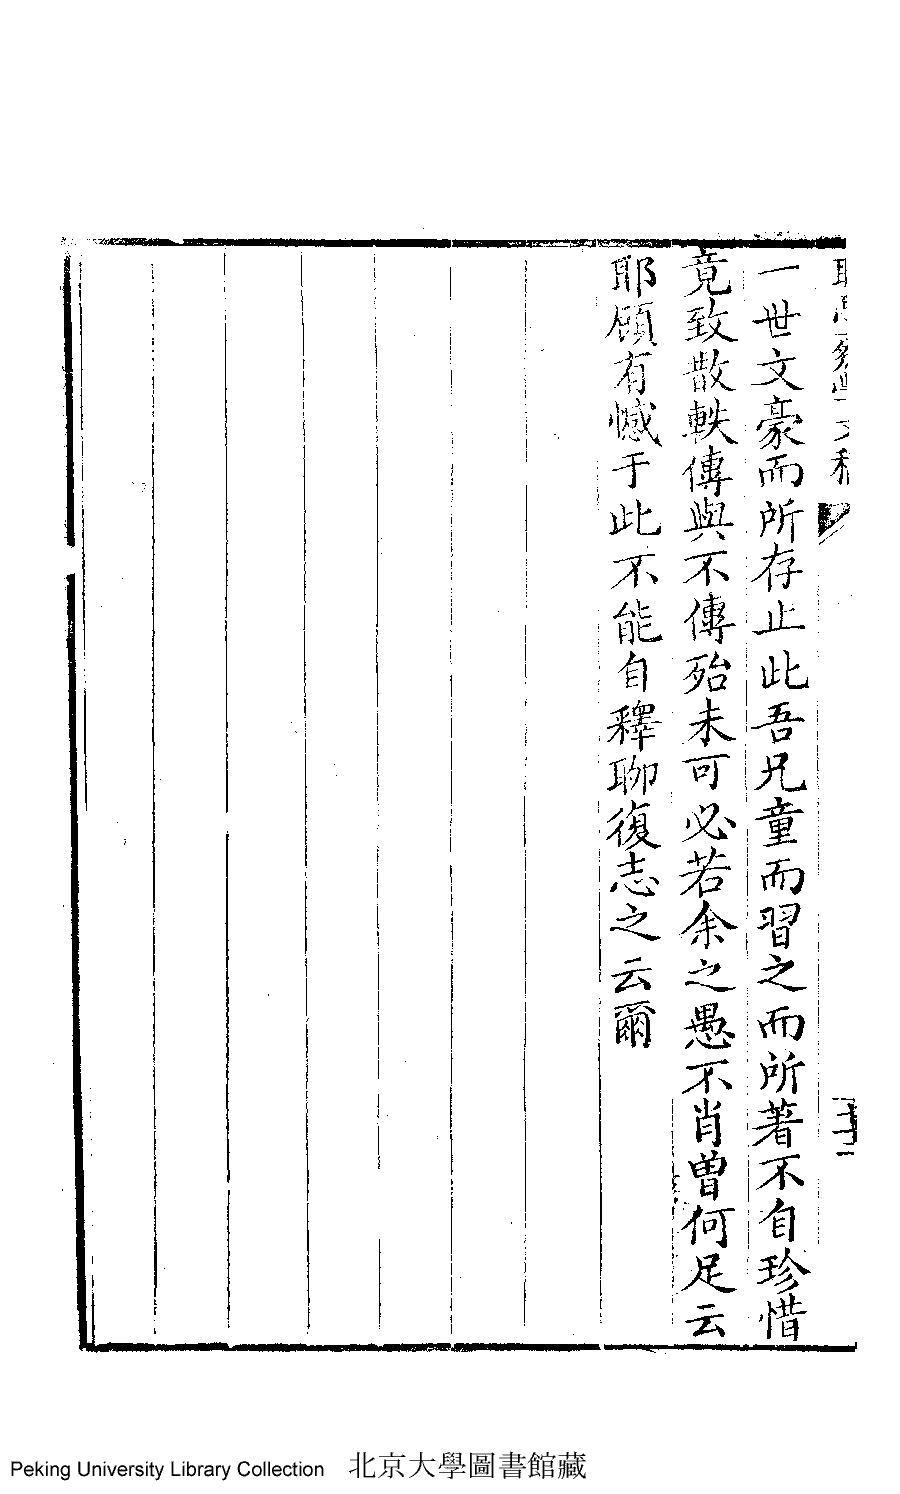 一世文豪而所存止此吾兄童而習之而所著不自珍惜
竟致散軼傳與不傳殆未可必若余之愚不肖曾何足云
耶頎有憾于此不能自釋聊復志之云爾
Peking University Library Collection 北京大學圖書館藏